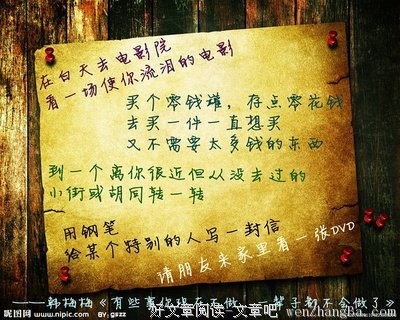 在白天去电影院
看一场使你流泪的电影
买个零钱罐，存点零花钱
去买一件一直想买
又不需要太多钱的东西
到一个离你很近但从没去过的
小街或胡同转一转
用钢笔
给某个特别的人写一封信
请朋友来家里看一张DVD
——韩梅梅《有些事你现在不做，一辈子都不会做了》
昵图网
www.nipic.com
By: gszz
好文章阅读-文章吧
wenzhangba.com